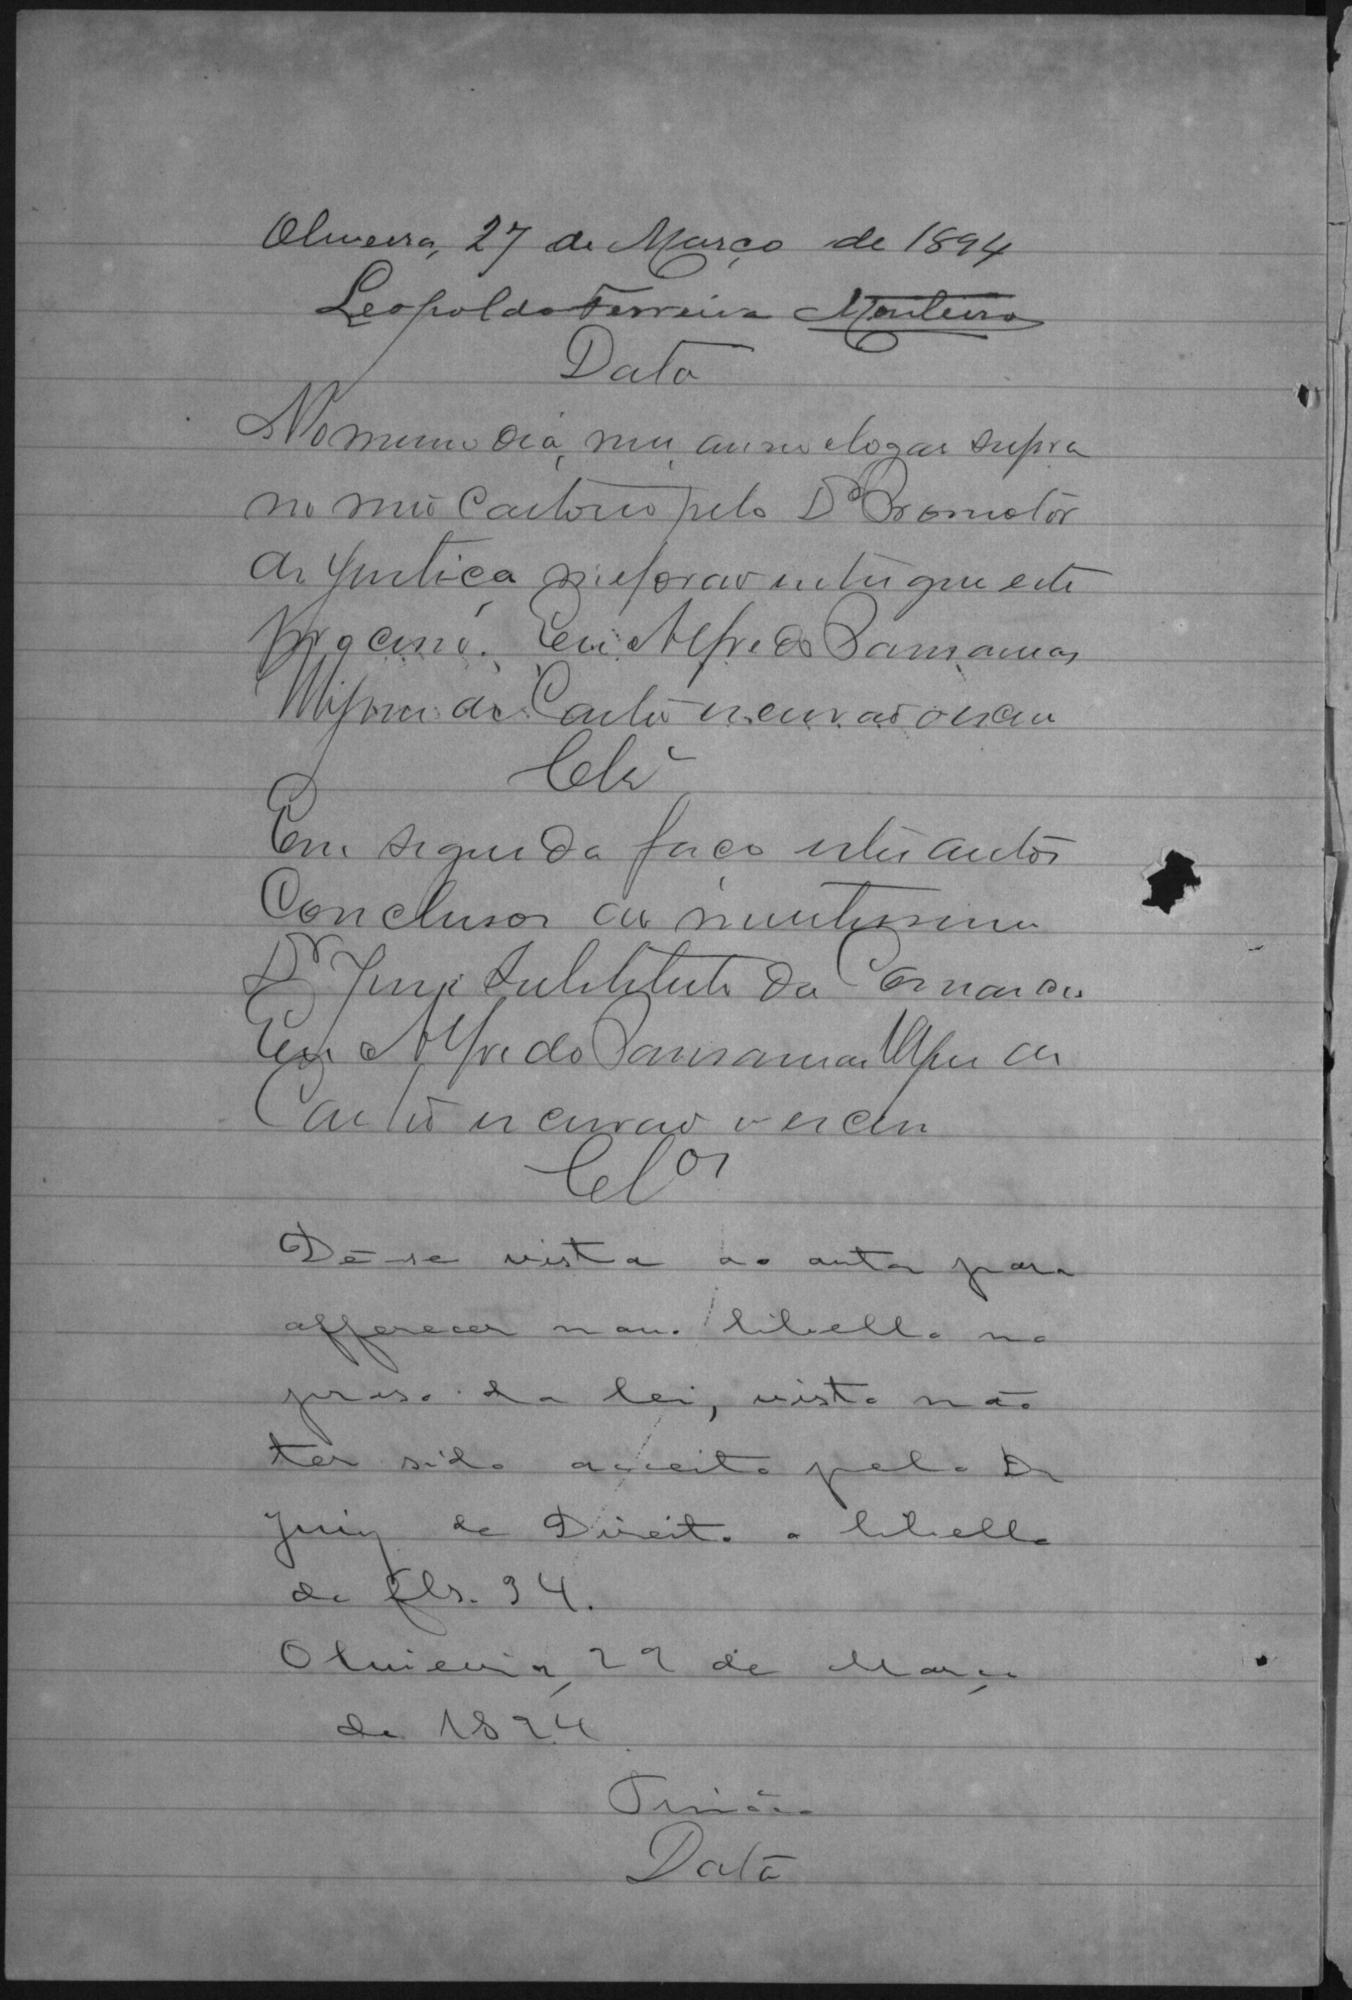 Oliveira, 27 de Março de 1894
Leopoldo Ferreira Monteiro
Data
No mesmo dia, mez, anno e logar supra
no meu Cartorio pelo Dr Promotor
de Justiça me forão entregue este
processo. Eu Alfredo
de Castro escrivão o escrevi
Clz
Em seguida faço estes autos
Conclusos ao meretissimo
Dr Juiz Substituto da Comarca
Eu Alfredo de
Castro escrivão o escrevi
Clos
Dê-se vista ao autor para
offerecer novo libello no
praso da lei, visto não
ter sido acceito pelo Dr
Juiz de Direito o libello
de fls. 34.
Oliveira, 29 de Março
de 1894
Data